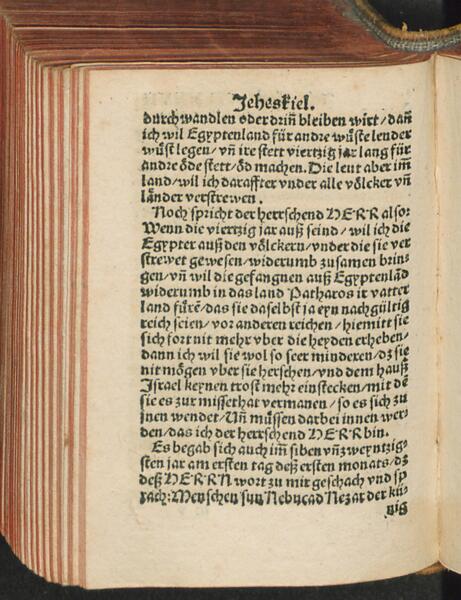 Jeheskiel.
durch wandlen oder drin̄ bleiben wirt / dan̄
ich wil Egyptenland für andre wüste lender
wüst legen / vn̄ ire stett viertzig jar lang für
andre öde stett / öd machen. Die leut aber im̄
land / wil ich daraffter vnder alle völcker vn̄
länder verstrewen.
Noch spricht der herrschend HERR also:
Wenn die viertzig jar auß seind / wil ich die
Egypter auß den völckern / vnder die sie ver
strewet gewesen / widerumb zusamen brin-
gen / vn̄ wil die gefangnen auß Egyptenlād
widerumb in das land Patharos ir vatter
land fürē / das sie daselbst ja eyn nachgültig
reich seien / vor anderen reichen / hiemitt sie
sich fort nit mehr vber die heyden erheben /
dann ich wil sie wol so seer minderen / dz sie
nit mögen vber sie herschen / vnd dem hauß
Israel keynen trost mehr einstecken / mit dē
sie es zur missethat vermanen / so es sich zu
jnen wendet / Vn̄ müssen darbei innen wer-
den / das ich der herrschend HERR bin.
Es begab sich auch im̄ siben vn̄ zweyntzig-
sten jar am ersten tag deß ersten monats / dz
deß HERRN wort zu mir geschach vnd sp
rach: Menschen sun Nebucad Nezar der kü-
nig